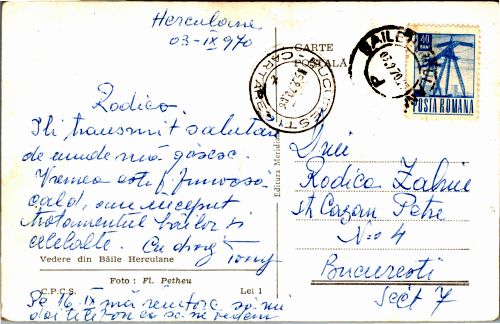 Herculane
03-IX 970
CARTE
POȘTALĂ
BUCUREȘTI
CARTARE
BĂILE
40
BANI
POSTA ROMANA
Rodica
Iți transmit salutări
de unde mă găsesc.
Vremea este frumoasă
cald, am început
tratamentul băilor și
celelalte. Cu drag Tony
Vedere din Băile Herculane
Foto : Fl. Petheu
C.P.C.S. Lei 1
Pe 16 IX mă reîntorc să-mi
dai telefon ca să ne vedem
Editura Meridiane
Dnei
Rodica
str Cazan Petre
No 4
București
Sect 7